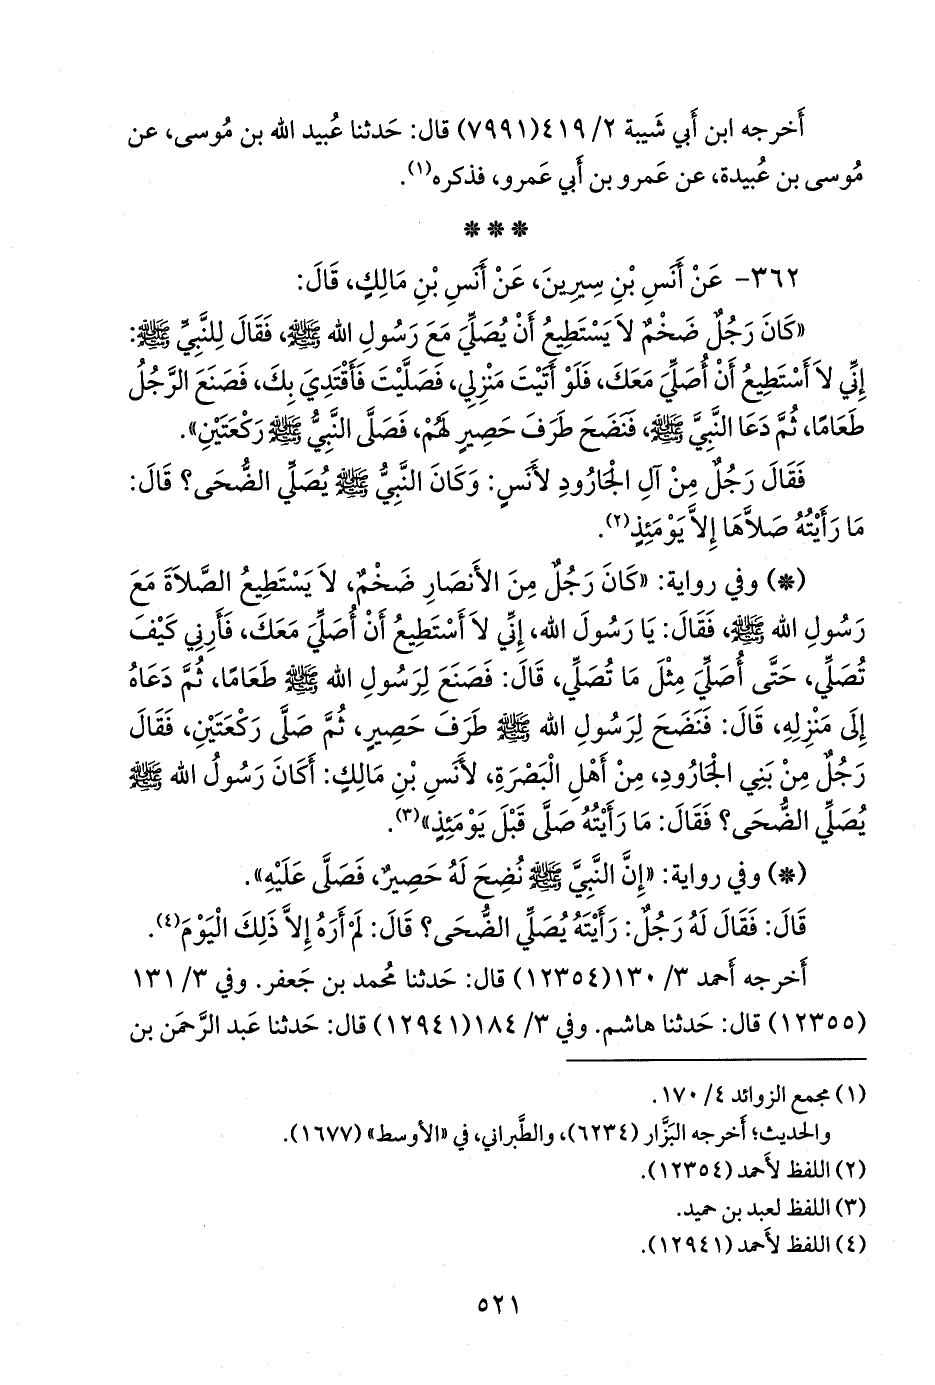 أَخرجه ابن أَبي شَيبة ٢/ ٤١٩(٧٩٩١) قال: حَدثنا عُبيد الله بن مُوسى، عن
مُوسى بن عُبيدة، عن عَمرو بن أَبي عَمرو، فذكره(١).
* * *
٣٦٢- عَنْ أَنَسِ بْنِ سِيرِينَ، عَنْ أَنَسِ بْنِ مَالِكٍ، قَالَ:
«كَانَ رَجُلٌ ضَخْمٌ لاَ يَسْتَطِيعُ أَنْ يُصَلِّيَ مَعَ رَسُولِ الله ﷺ، فَقَالَ لِلنَّبِيِّ ﷺ:
إِنِّي لاَ أَسْتَطِيعُ أَنْ أُصَلِّيَ مَعَكَ، فَلَوْ أَتَيْتَ مَنْزِلِي، فَصَلَّيْتَ فَأَقْتَدِيَ بِكَ، فَصَنَعَ الرَّجُلُ
طَعَامًا، ثُمَّ دَعَا النَّبِيَّ ﷺ، فَنَضَحَ طَرَفَ حَصِيرٍ لَهُمْ، فَصَلَّى النَّبِيُّ ﷺ رَكْعَتَيْنِ».
فَقَالَ رَجُلٌ مِنْ آلِ الْجَارُودِ لأَنَسٍ: وَكَانَ النَّبِيُّ ﷺ يُصَلِّي الضُّحَى؟ قَالَ:
مَا رَأَيْتُهُ صَلاَّهَا إِلاَّ يَوْمَئِذٍ(٢).
(*) وفي رواية: «كَانَ رَجُلٌ مِنَ الأَنْصَارِ ضَخْمٌ، لاَ يَسْتَطِيعُ الصَّلاَةَ مَعَ
رَسُولِ الله ﷺ، فَقَالَ: يَا رَسُولَ الله، إِنِّي لاَ أَسْتَطِيعُ أَنْ أُصَلِّيَ مَعَكَ، فَأَرِنِي كَيْفَ
تُصَلِّي، حَتَّى أُصَلِّيَ مِثْلَ مَا تُصَلِّي، قَالَ: فَصَنَعَ لِرَسُولِ الله ﷺ طَعَامًا، ثُمَّ دَعَاهُ
إِلَى مَنْزِلِهِ، قَالَ: فَنَضَحَ لِرَسُولِ الله ﷺ طَرَفَ حَصِيرٍ، ثُمَّ صَلَّى رَكْعَتَيْنِ، فَقَالَ
رَجُلٌ مِنْ بَنِي الْجَارُودِ، مِنْ أَهْلِ الْبَصْرَةِ، لأَنَسِ بْنِ مَالِكٍ: أَكَانَ رَسُولُ الله ﷺ
يُصَلِّي الضُّحَى؟ فَقَالَ: مَا رَأَيْتُهُ صَلَّى قَبْلَ يَوْمَئِذٍ»(٣).
(*) وفي رواية: «إِنَّ النَّبِيَّ ﷺ نُضِحَ لَهُ حَصِيرٌ، فَصَلَّى عَلَيْهِ».
قَالَ: فَقَالَ لَهُ رَجُلٌ: رَأَيْتَهُ يُصَلِّي الضُّحَى؟ قَالَ: لَمْ أَرَهُ إِلاَّ ذَلِكَ الْيَوْمَ(٤).
أَخرجه أَحمد ٣/ ١٣٠(١٢٣٥٤) قال: حَدثنا مُحمد بن جَعفر. وفي ٣/ ١٣١
(١٢٣٥٥) قال: حَدثنا هاشم. وفي ٣/ ١٨٤(١٢٩٤١) قال: حَدثنا عَبد الرَّحمَن بن
(١) مجمع الزوائد ٤/ ١٧٠.
والحديث؛ أخرجه البَزَّار (٦٢٣٤)، والطَّبراني، في «الأوسط» (١٦٧٧).
(٢) اللفظ لأحمد (١٢٣٥٤).
(٣) اللفظ لعبد بن حميد.
(٤) اللفظ لأحمد (١٢٩٤١).
٥٢١